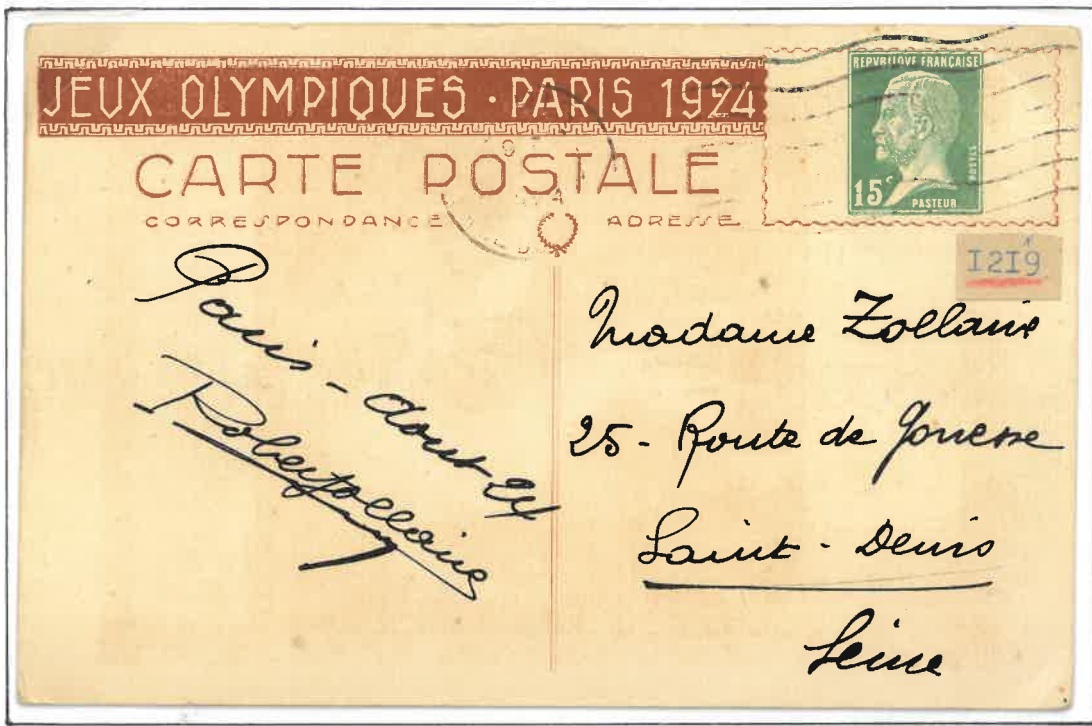 JEUX OLYMPIQUES · PARIS 1924
CARTE POSTALE
CORRESPONDANCE ADRESSE
REPVBLIQVE FRANCAISE
POSTES
15c
PASTEUR
I2I9
Paris - Aout 24
Robert Zollaire
Madame Zollaire
25 - Route de Gonesse
Saint - Denis
Seine